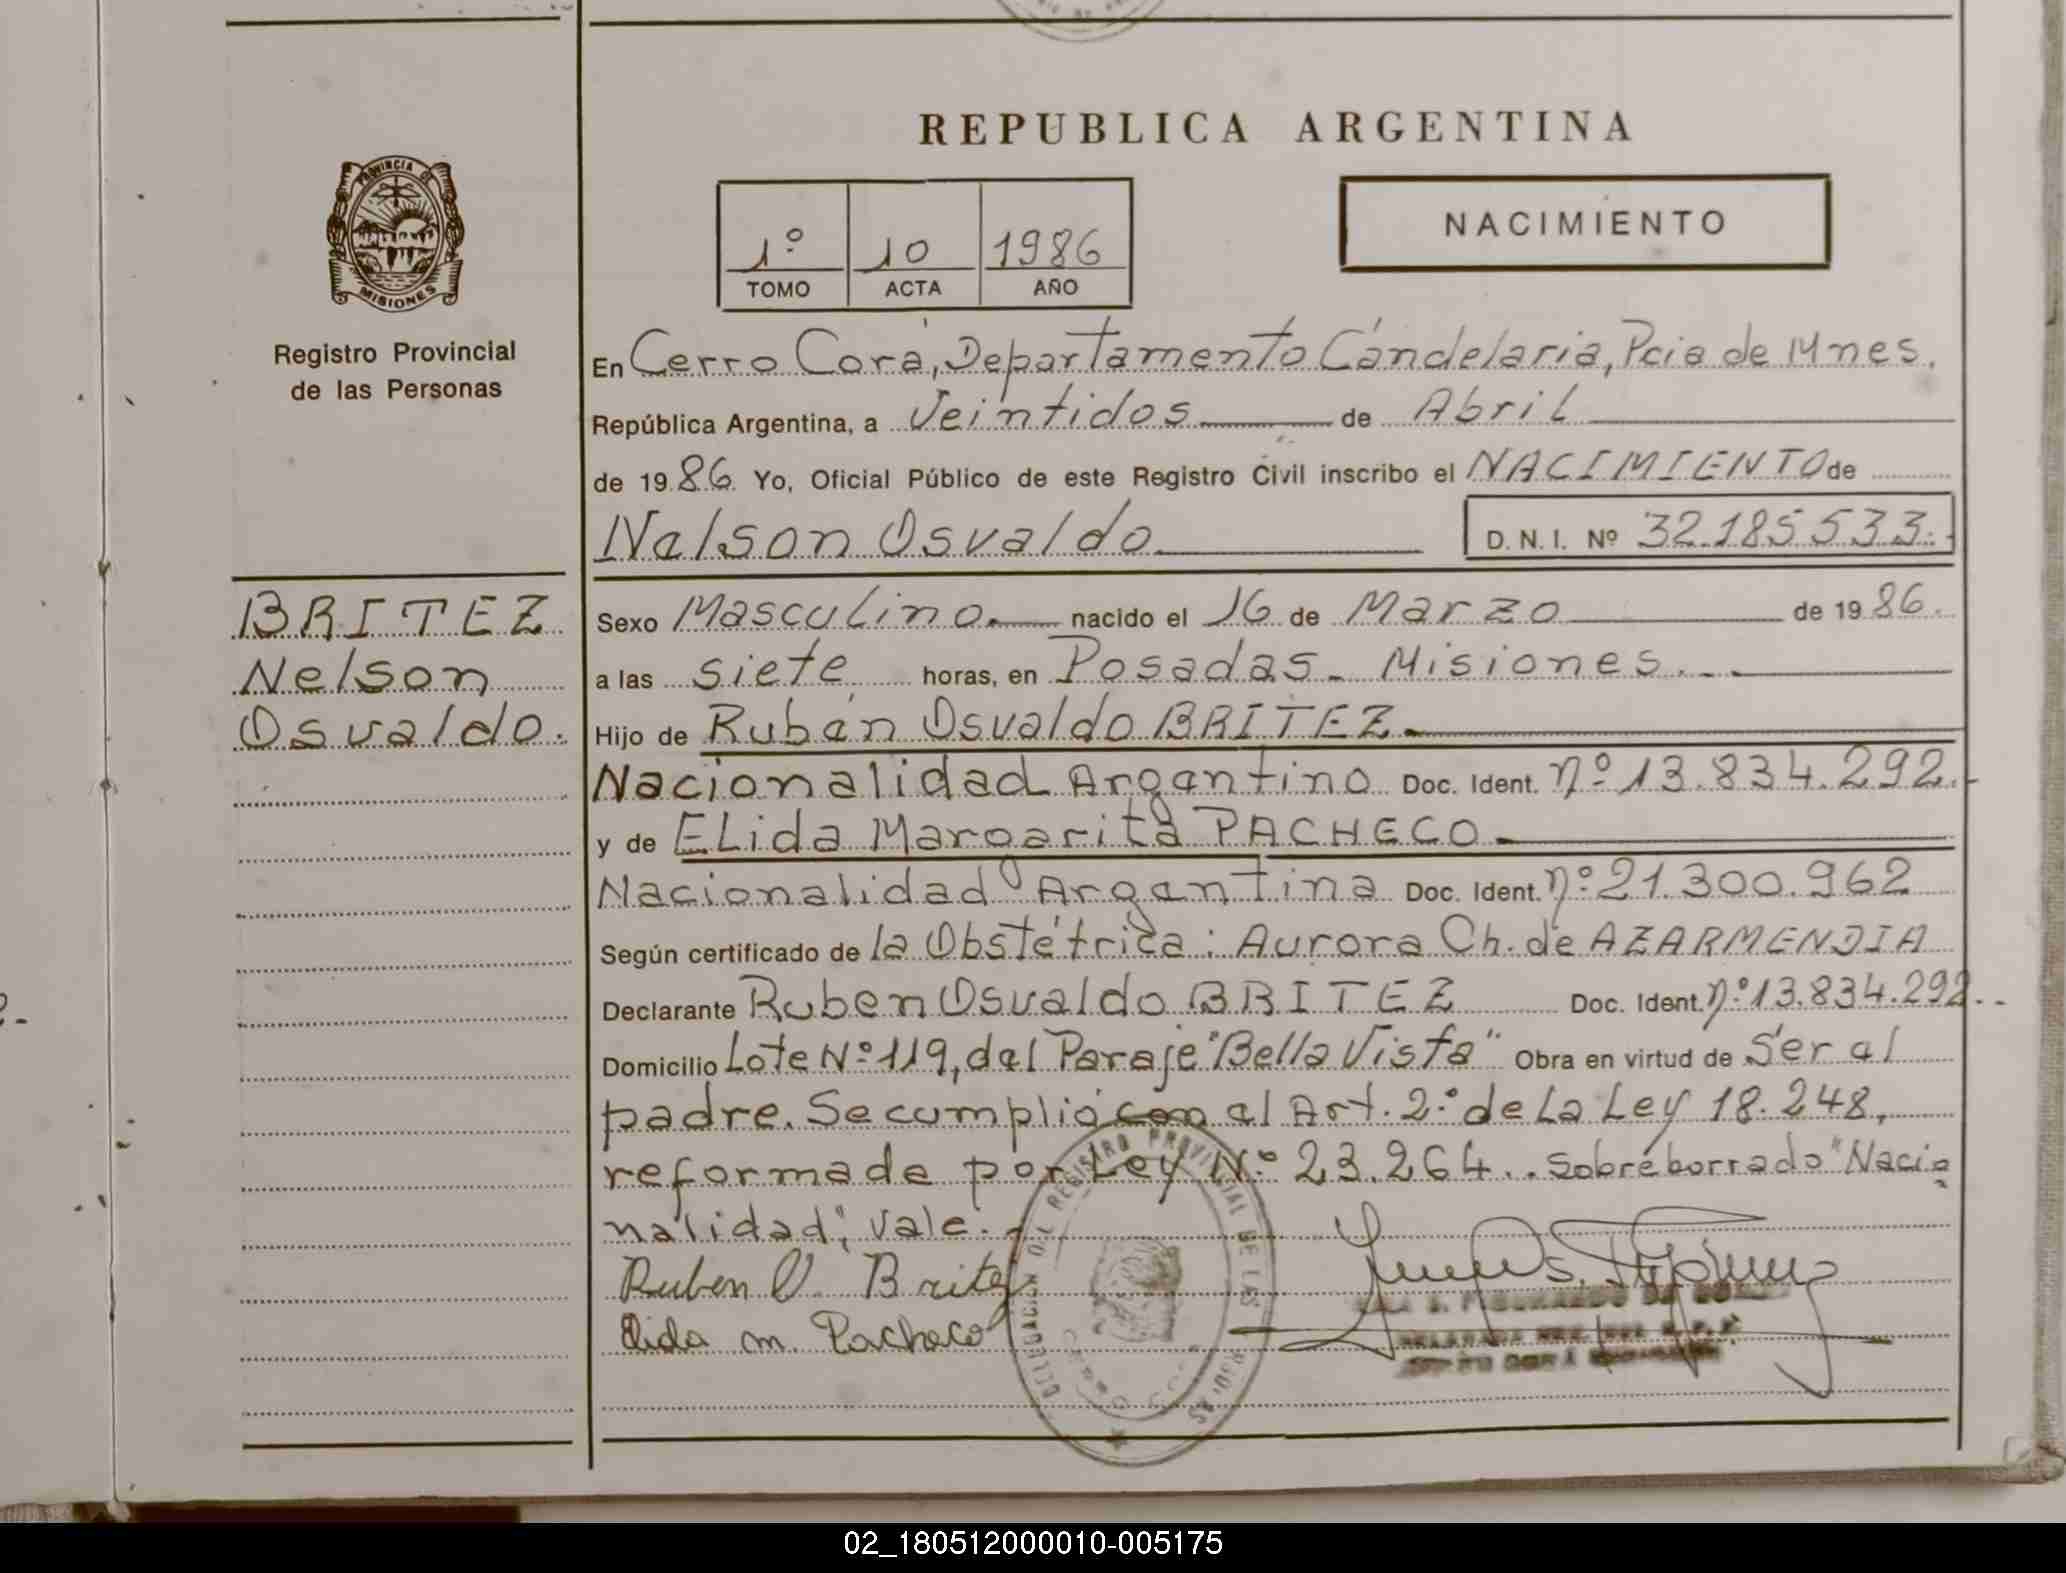 REPUBLICA ARGENTINA
PROVINCIA DE
MISIONES
Registro Provincial
de las Personas
1º 10 1986
TOMO ACTA AÑO
NACIMIENTO
En Cerro Corá, Departamento Candelaria, Pcia de Mnes.
República Argentina, a Veintidos de Abril
de 1986 Yo, Oficial Público de este Registro Civil inscribo el NACIMIENTO de
Nelson Osvaldo D. N. I. Nº 32.185.533.
BRITEZ
Nelson
Osvaldo.
Sexo Masculino. nacido el 16 de Marzo de 1986.
a las siete horas, en Posadas - Misiones.
Hijo de Rubén Osvaldo BRITEZ.
Nacionalidad Argentino Doc. Ident. Nº 13.834.292.-
y de Elida Margarita PACHECO.
Nacionalidad Argentina Doc. Ident. Nº 21.300.962
Según certificado de la Obstétrica: Aurora Ch. de AZARMENDIA
Declarante Ruben Osvaldo BRITEZ Doc. Ident. Nº 13.834.292.-
Domicilio Lote Nº 119, del Paraje "Bella Vista" Obra en virtud de Ser al
padre. Se cumplió con el Art. 2º de La Ley 18.248,
reformada por Ley Nº 23.264.. Sobreborrado "Nacio
nalidad", vale.-
Ruben O. Britez
Elida M. Pacheco
DELEGACION DEL REGISTRO PROVINCIAL DE LAS
02_180512000010-005175